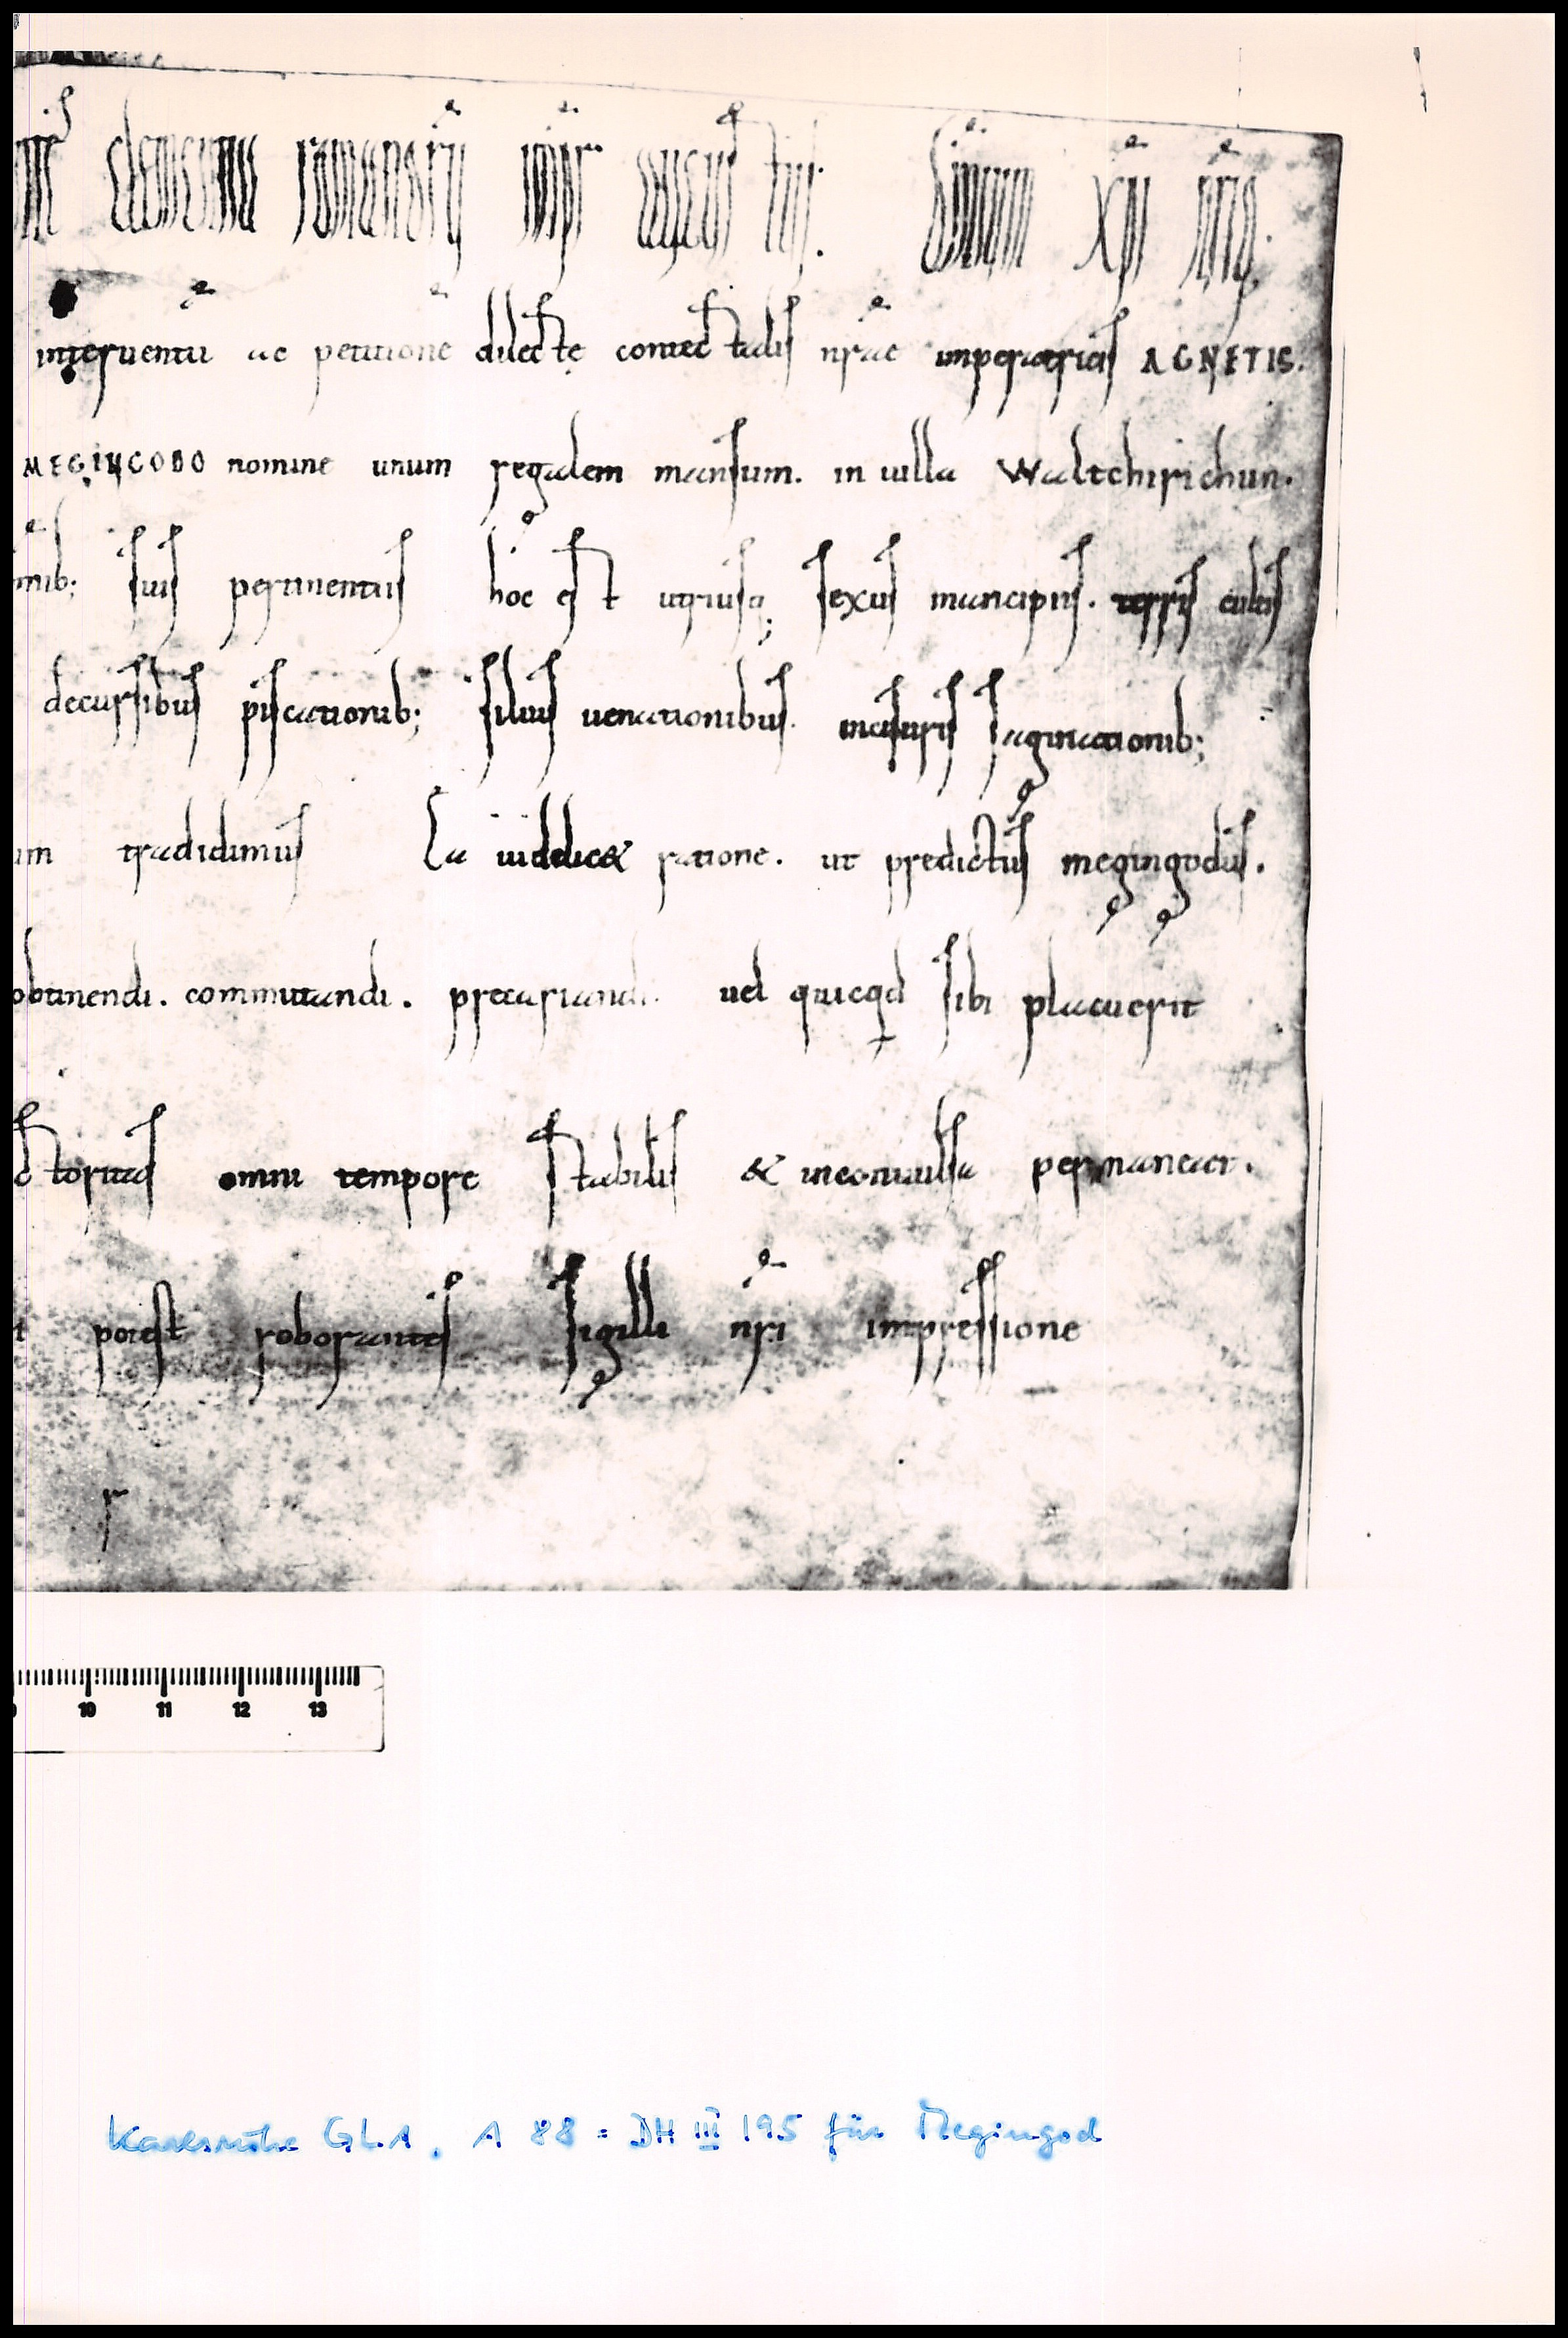 clementia romanorū imp̄r augustus. Om̄ium xp̄i n̄rīq;
interuentū ac petitione dilecte contectalis nr̄ae imperatricis AGNETIS.
MEGINGODO nomine unum regalem mansum. in uilla Waltchirichun.
nib; suis pertinentiis hoc est utriusq; sexus mancipiis. terris cultis
decursibus piscationib; siluis uenationibus. mastaris saginationib;
um tradidimus Ea uidelic& ratione. ut predictus megingodus.
obtinendi. commutandi. precariandi. uel quicqd sibi placuerit
ctoritas omni tempore stabilis & inconuulsa permaneat.
t potest roborantes sigilli nr̄i impressione
10 11 12 13
Karlsruhe GLA, A 88 = DH III 195 für Megingod